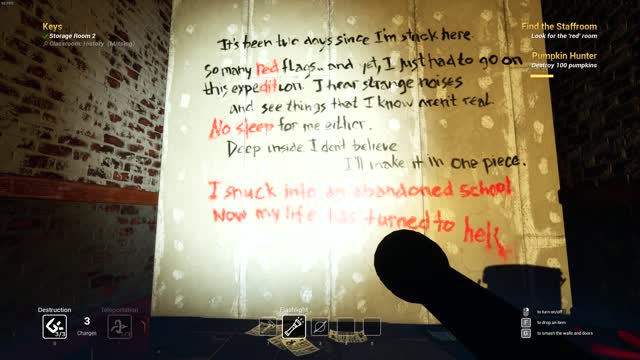 Keys
Storage Room 2
Classroom: History (Missing)
Find the Staffroom
Look for the 'red' room
Pumpkin Hunter
Destroy 100 pumpkins
It's been two days since I'm stuck here.
So many red flags.. and yet, I just had to go on
this expedition. I hear strange noises
and see things that I know aren't real.
No sleep for me either.
Deep inside I don't believe
I'll make it in one piece.
I snuck into an abandoned school
Now my life has turned to hell
Destruction
3/3
3
Charges
Teleportation
Flashlight
to turn on/off
F
to drop an item
G
to smash the walls and doors